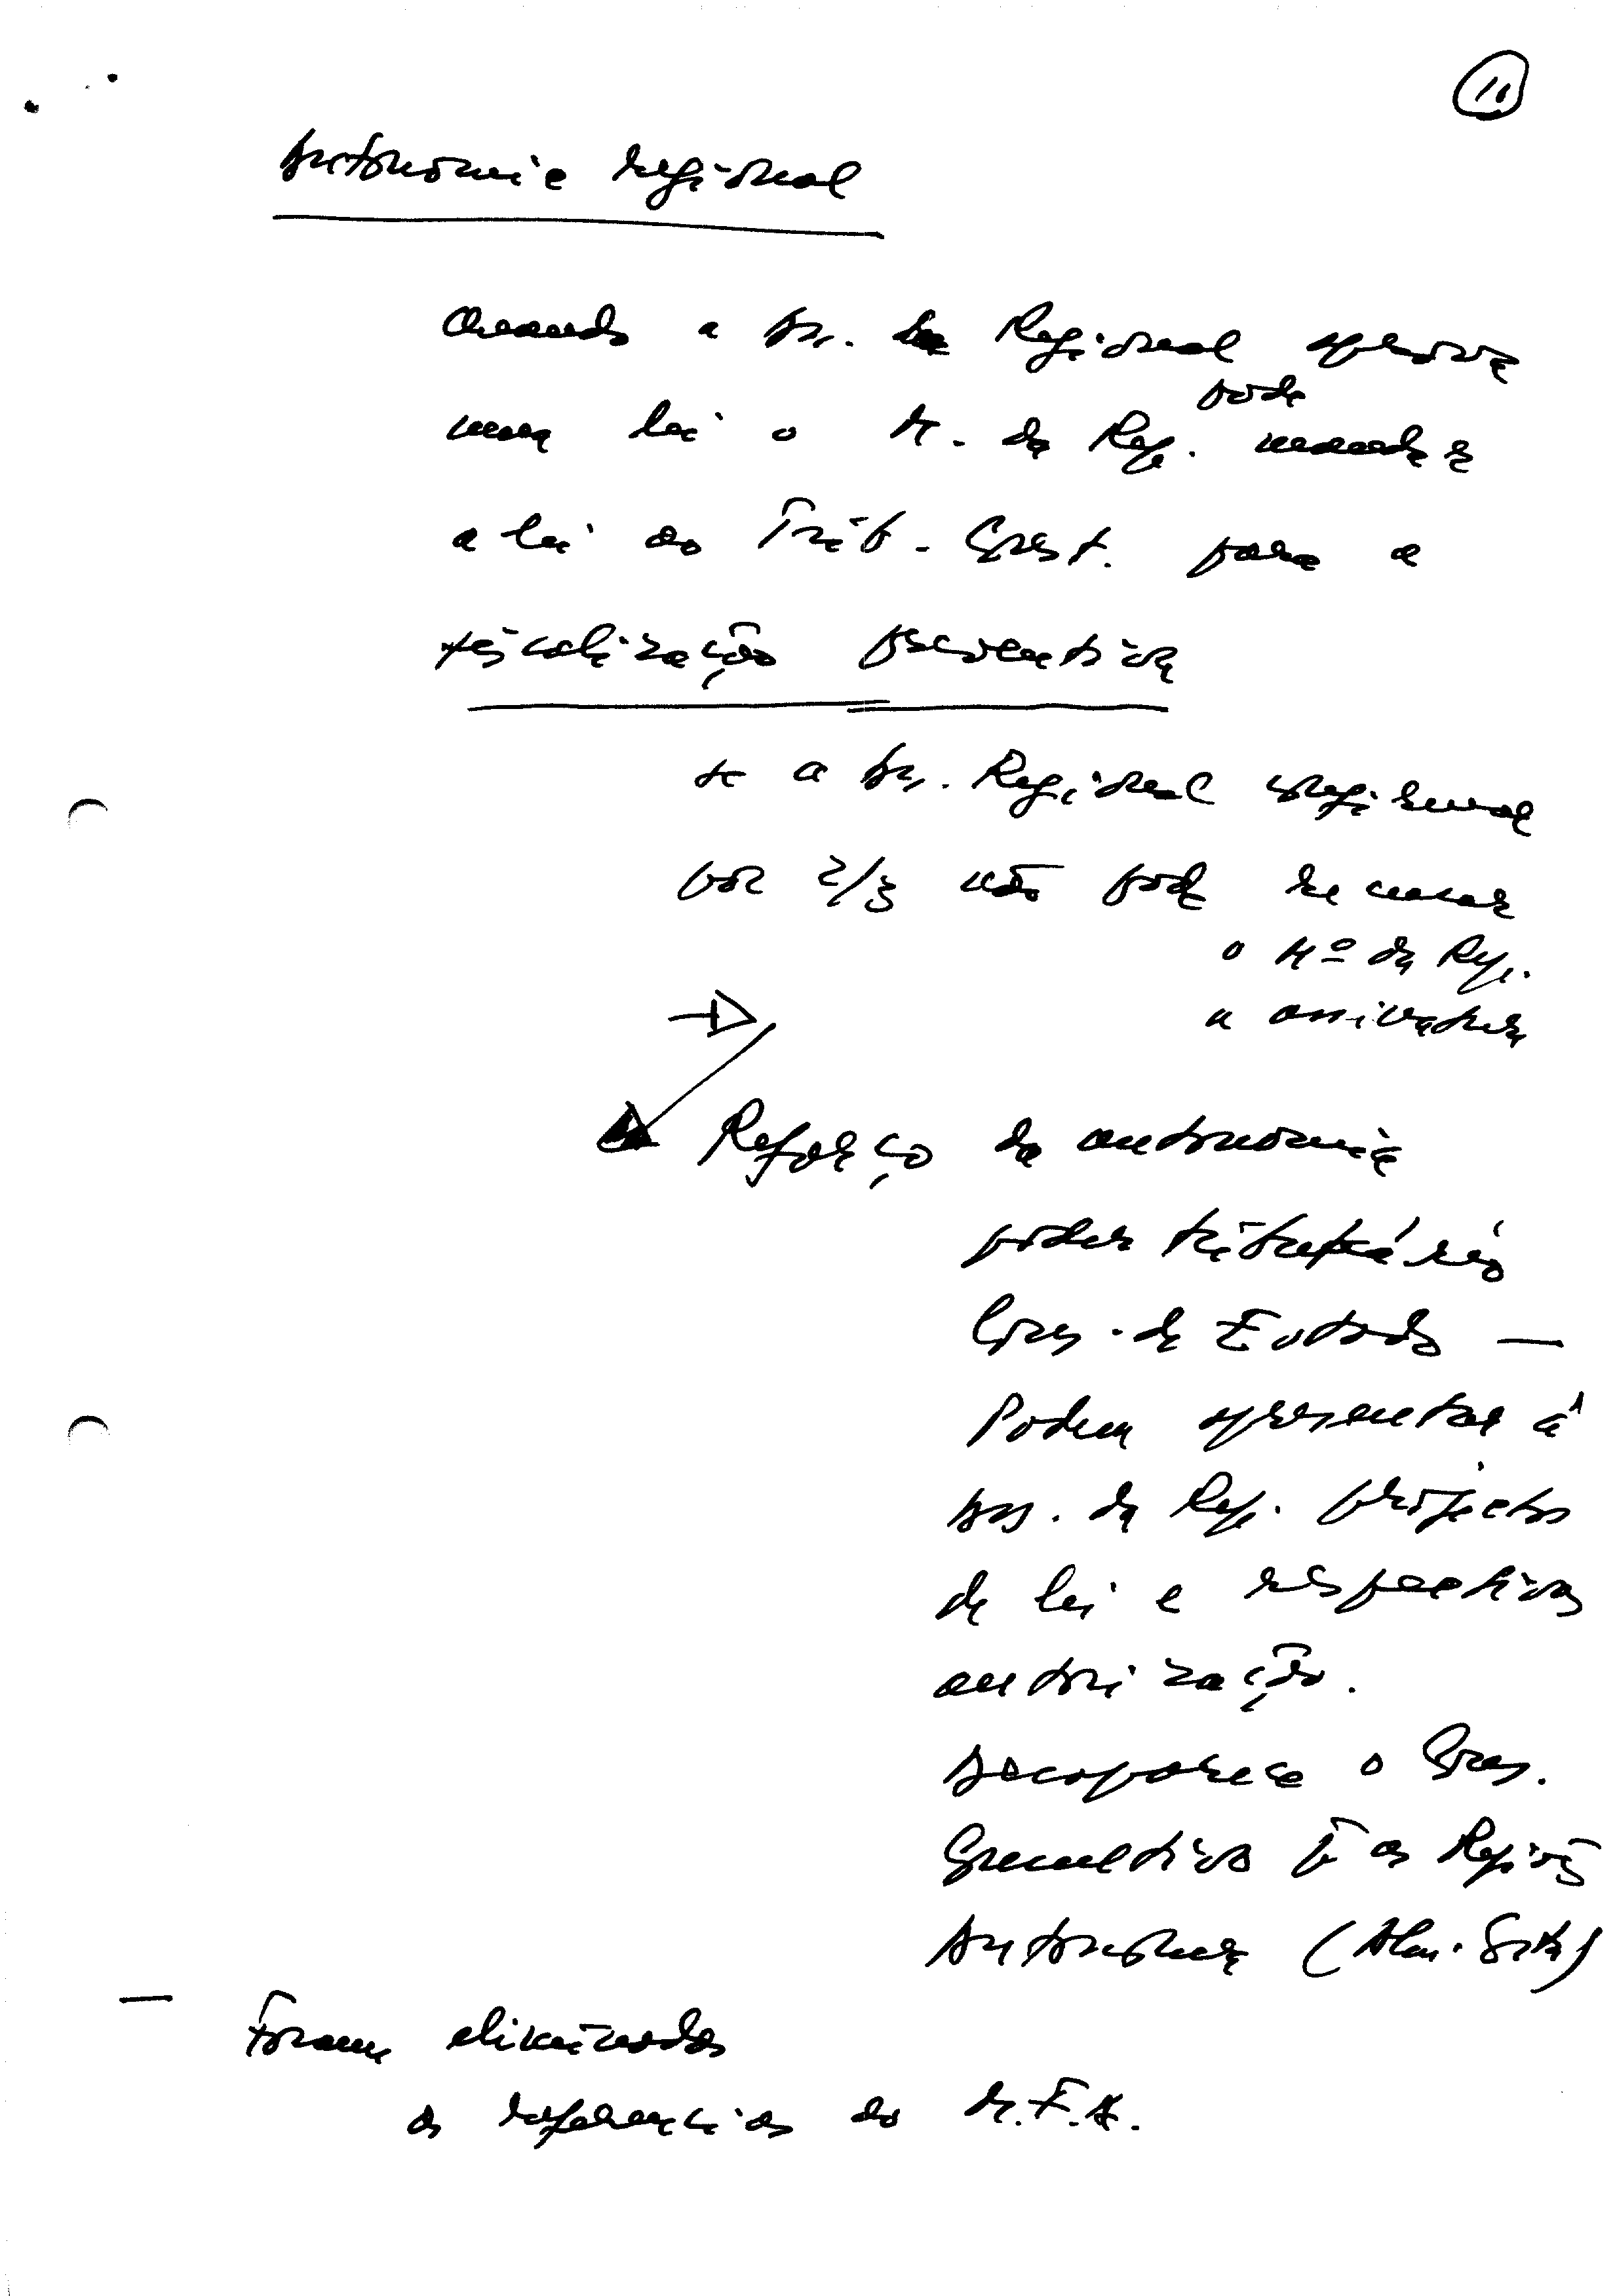 Autonomia regional
Quando a Ass. Regional aprova
uma lei o M. da Rep. pode mandar
a lei ao Trib. Const. para a
fiscalização preventiva
se a Ass. Regional confirmar
por 2/3 não pode recusar
o Mº da Rep.
a assinatura
Reforço da autonomia
poder tributário
Cons. de Estado —
Podem apresentar à
Ass. da Rep. projectos
de lei e respectiva
autorização.
Desaparece o Cons.
Consultivo p as Regiões
Autonomas
— Foram eliminadas
as referencias ao M.F.A.